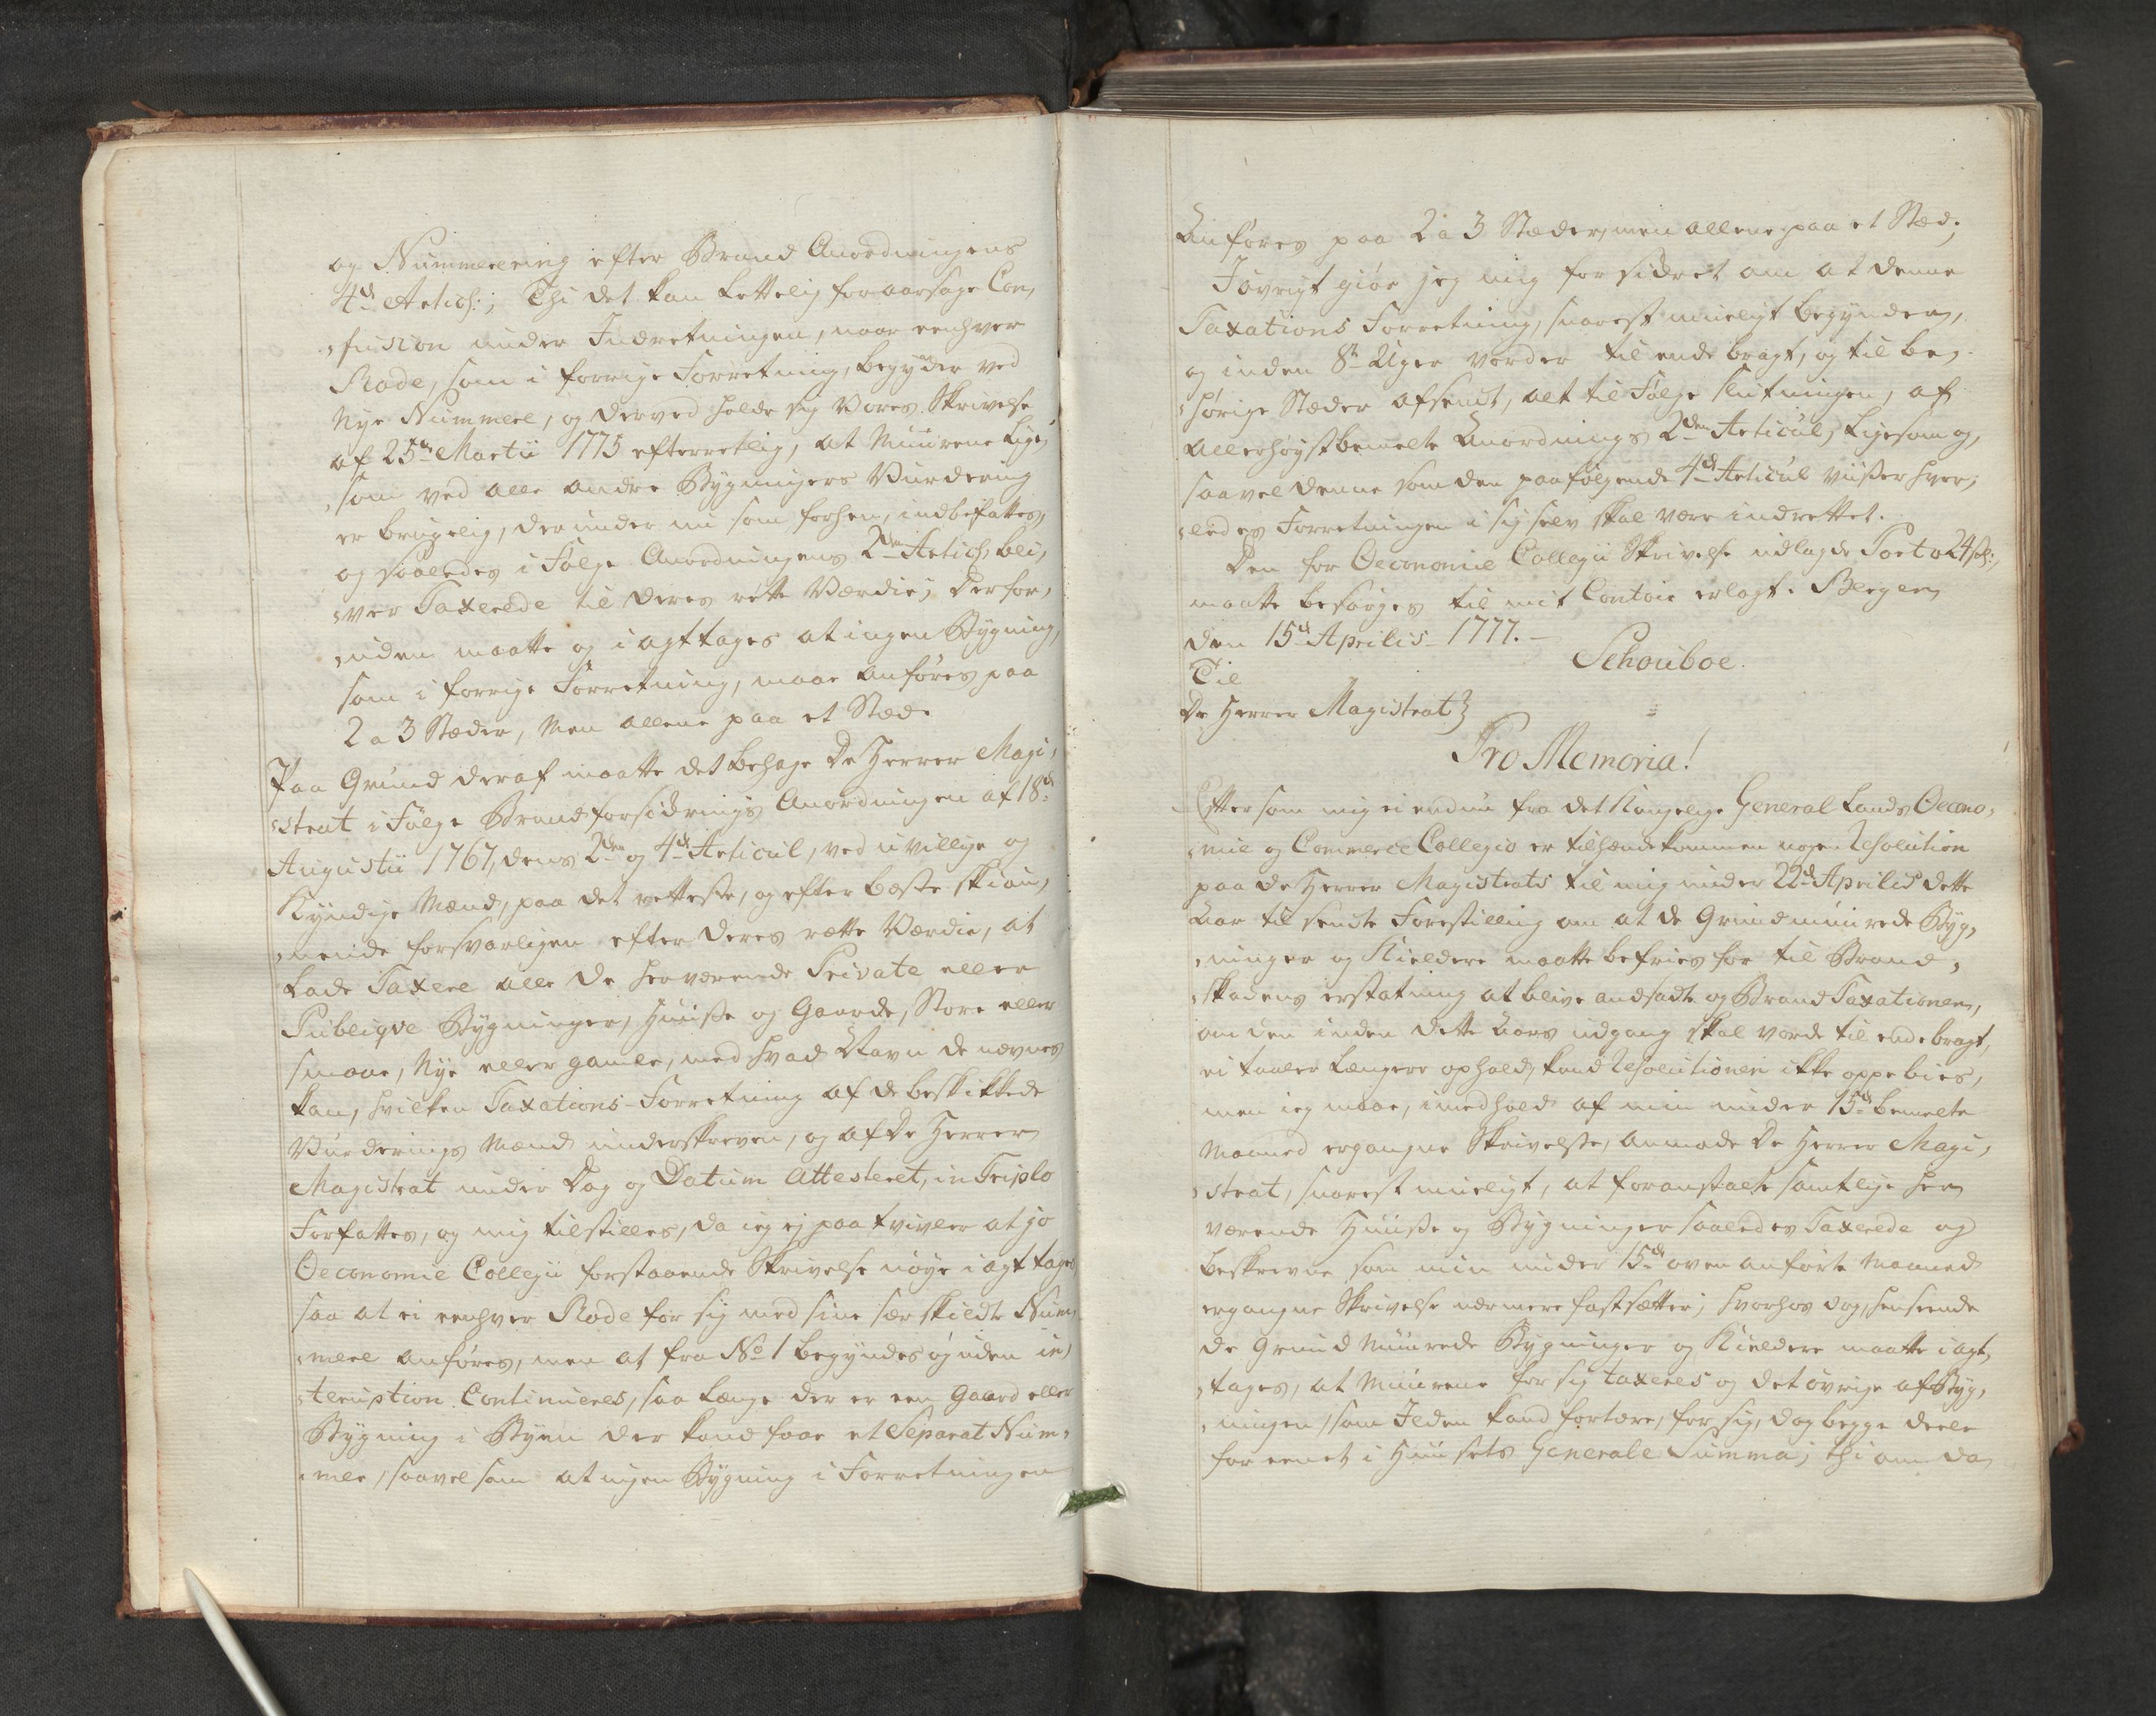 og Nummerering efter Brand Anordningens
4de Articl:; Thi det kan lettelig foraarsage Con,
,fusion under Indretningen, naar eenhver
Rode, som i forrige Forretning, begynder ved
Nye Nummere, og derved holde sig Vores Skrivelse
af 25de Martii 1775 efterretlig, at Muurene lige,
,som ved alle andre Bygningers Vurdering
er brugelig, derunder nu som forhen, indbefattes,
og saaledes i Følge Anordningens 2den Articl, bli,
,ver Taxerede til deres rette Værdie; Derfor,
,uden maatte og i agttages at ingen Bygning,
som i forrige Forretning, maae anføres paa
2 a 3 Stæder, Men allene paa et Stæd.
Paa Grund deraf maatte det behage De Herrer Magi,
,strat i Følge Brandforsikrings Anordningen af 18de
Augustii 1767, dens 2den og 4de Articul, ved uvillige og
Kyndige Mænd, paa det netteste, og efter beste skiøn,
,nende forsvarligen efter deres rette Værdie, at
Lade Taxere alle de herværende Private eller
Publiqve Bygninger, Huuse og Gaarde, Store eller
smaae, Nye eller gamle, med hvad Navn de nævnes
kan, hvilken Taxations-Forretning af de beskikkede
Vurderings Mænd underskreven, og af De Herrer
Magistrat under Dag og Datum Attesteret, in Triplo
Forfattes, og mig tilstilles, da ieg ej paa tvivler at jo
Oeconomie Collegii forstaaende Skrivelse nøye i agttages
saa at ei eenhver Rode for sig med sine særskildte Num,
,mere anføres, men at fra No 1 begyndes og uden in,
,terruption Continueres, saa længe der er een Gaard eller
Bygning i Byen der kand faae et Separat Num,
,mer, saavel som at ingen Bygning i Forretningen
Anføres paa 2 a 3 Stæder, men allene paa et Stæd;
Iøvrigt giør jeg mig forsikret om at denne
Taxations Forretning, snarest mueligt begyndes,
og inden 8te Uger vorder til ende bragt, og til be,
,hørige Stæder afsendt, alt til Følge slutningen, af
allerhøystbemelte Anordnings 2den Articul, ligesom og,
saavel denne som den paafølgende 4de Articul viiser hvor,
,ledes Forretningen i sig selv skal være indrettet.
Den for Oeconomie Collegii Skrivelse udlagde Porto 24 sk:,
maatte besørges til mit Contoir erlagt. Bergen
den 15de Aprilis 1777.
Schouboe.
Til
De Herrer Magistrat}
Pro Memoria!
Eftersom mig ei endnu fra det Kongelige General Lands Oecono,
,mie og Commerce Collegio er tilhændekommen nogen Resolution
paa De Herrer Magistrats til mig under 22de Aprilis dette
Aar tilsendte Forestilling om at de Grundmuurede Byg,
,ninger og Kieldere maatte befries for til Brand,
,skadens erstatning at blive andsadte og Brand Taxationen,
om den inden dette Aars udgang skal vorde til ende bragt,
ei taaler længere ophold, kand Resolutionen ikke oppebies,
men ieg maae, i medhold af min under 15de bemelte
Maaned ergangne Skrivelse, anmode De Herrer Magi,
,strat, snarest mueligt, at foranstalte samtlige her
værende Huuse og Bygninger saaledes Taxerede og
beskrevne som min under 15de ovenanførte Maaned
ergangne Skrivelse nærmere fastsætter; hvorhos dog, henseende
de Grund Muurede Bygninger og Kieldere maatte i agt,
,tages, at Muurene for sig taxeres og det øvrige af Byg,
,ningen, som Ilden kand fortære, for sig, dog begge deele
foreenet i Huusets Generale Summa; thi om da